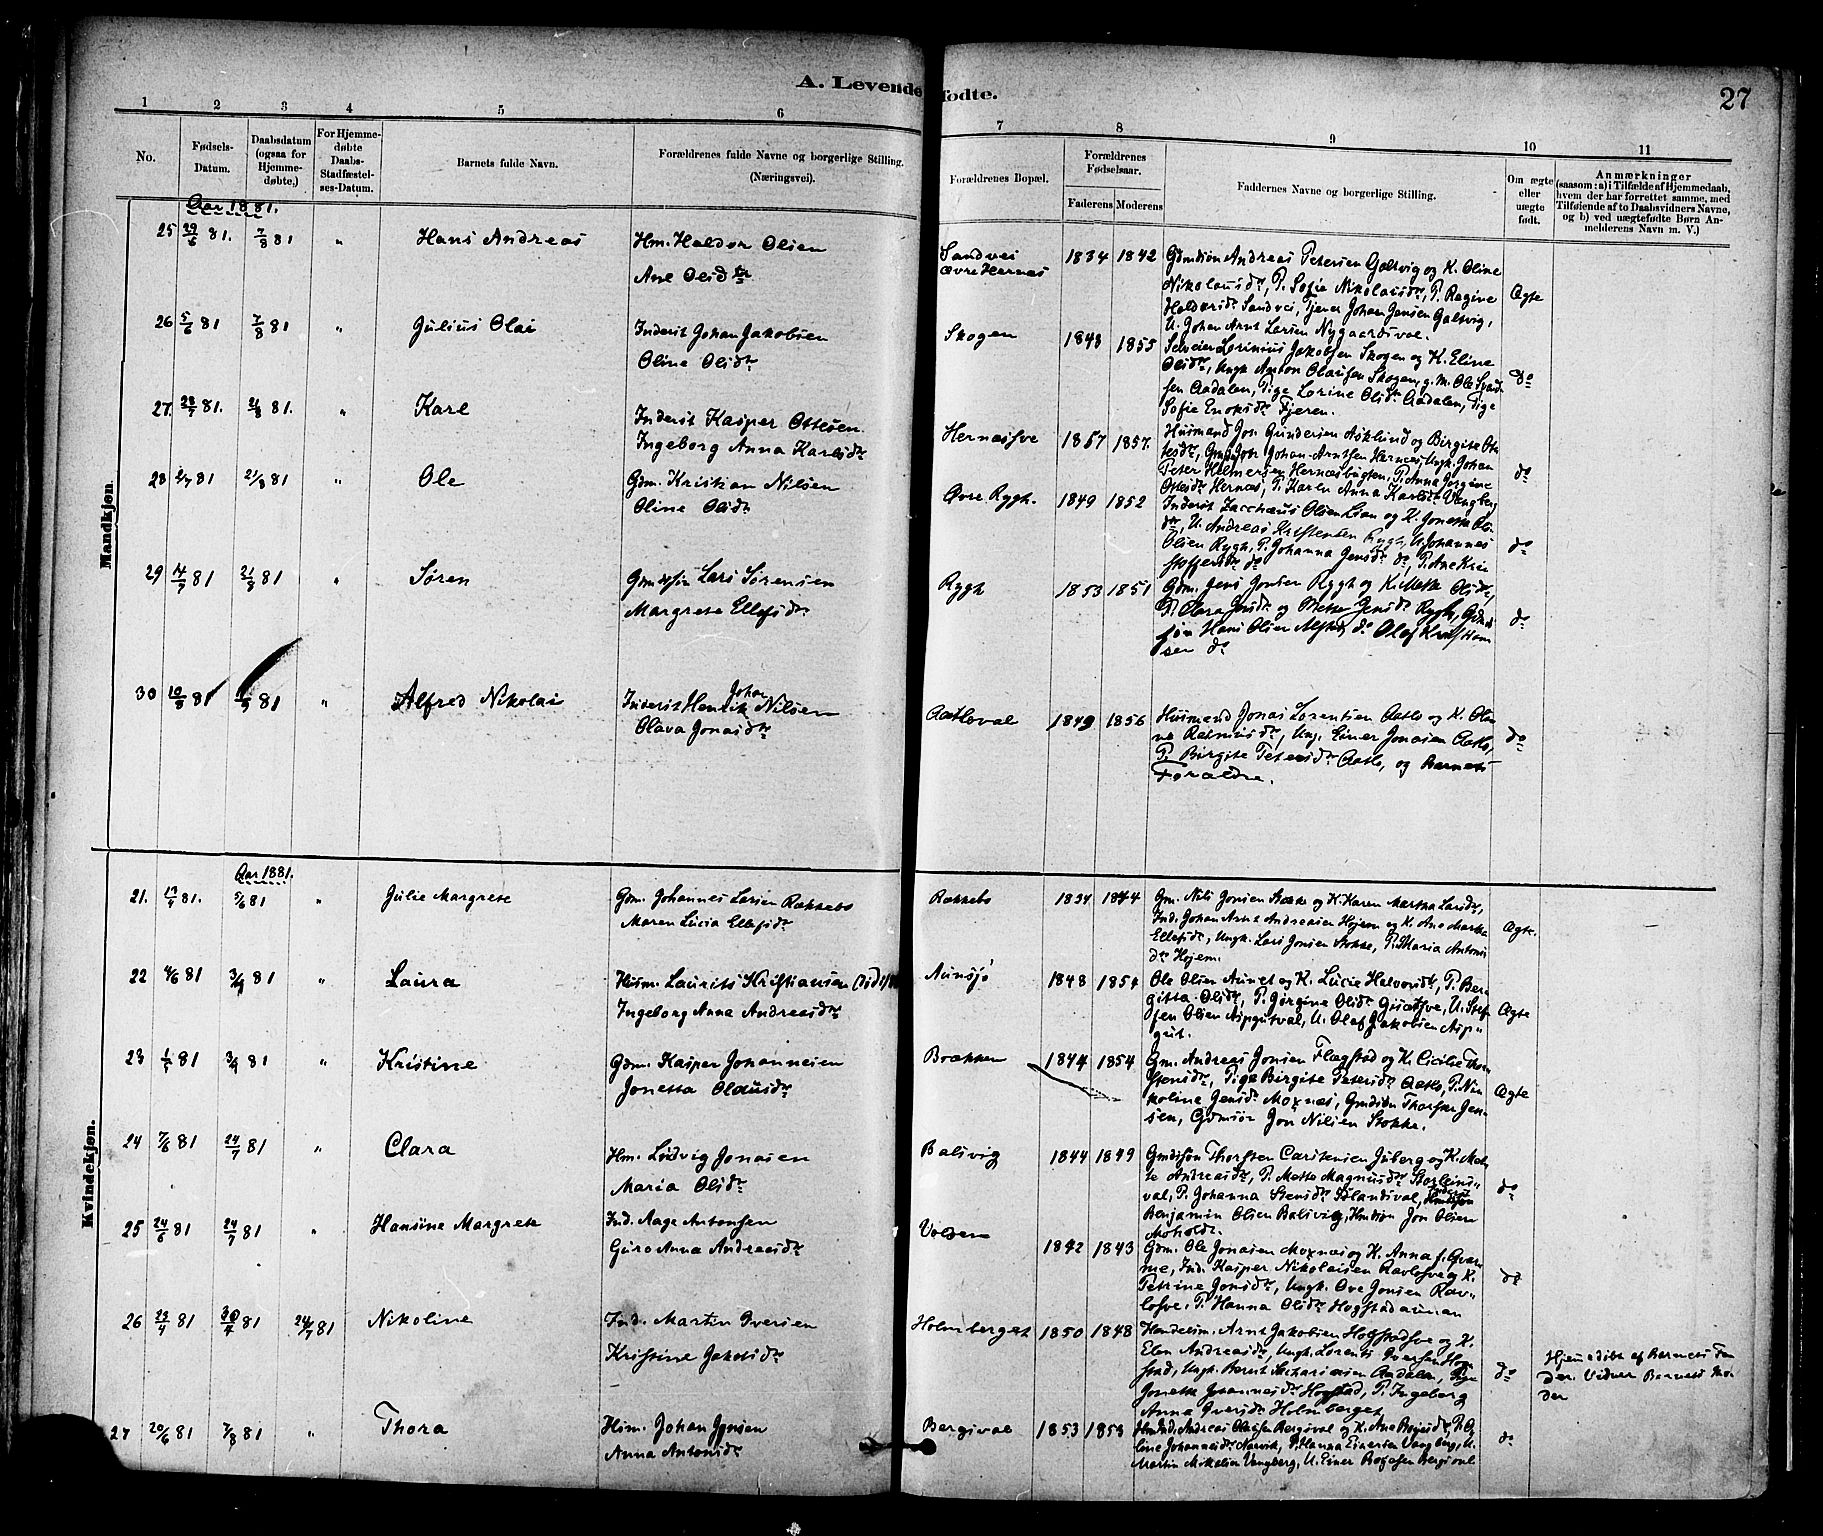 A. Levende fødte.
27
1 2 3 4 5 6 7 8 9 10 11
No.
Fødsels-Datum.
Daabsdatum (ogsaa for Hjemmedøbte.)
For Hjemmedøbte Daabs-Stadfæstelses-Datum.
Barnets fulde Navn.
Forældrenes fulde Navne og borgerlige Stilling.
(Næringsvei).
Forældrenes Bopæl.
Forældrenes Fødselsaar.
Faderens Moderens
Faddernes Navne og borgerlige Stilling.
Om ægte eller uægte født.
Anmærkninger
(saasom: a) i Tilfælde af Hjemmedaab,
hvem der har forrettet samme, med
Tilføiende af to Daabsvidners Navne,
og b) ved uægtefødte Børn An-
melderens Navn m. V.)
Mandkjøn.
Aar 1881.
25 29/6 81. 7/8 81 " Hans Andreas Hm. Haldor Olsen
Ane Olisdtr
Sandvei
øvre Hernes
1834 1842 Gdmdsøn Andreas Petersen Galtvig og K. Oline
Nikolausdtr, P. Sofie Nikolaisdtr, P. Ragine
Haldorsdtr Sandvei, Tjener Johan Jensen Galtvig,
U. Johan Arnt Larsen Nygaardsval.
Ægte
26 5/6 81 7/8 81 " Julius Olai Inderst Johan Jakobsen
Oline Olisdtr
Skogen 1848 1855 Selveier Lorinius Jakobsen Skogen og K. Eline
Olisdtr, Ungk Anton Olausen Skogen, g. M. Ole
sen Aadalen, Pige Lorine Olisdtr Aadalen, Pige
Sofie Enoksdtr Fjeren.
do
27. 28/7 81. 21/8 81. " Karl Inderst Kasper Ottesen.
Ingeborg Anna Karlsdtr
Hernesøve 1857 1857. Husmand Jon Gundersen Asklund og Birgite Ot-
tesdtr, Johan Arntsen Hernes, Ungk. Johan
Peter Helmersen Hernesbugten, P. Anna Jorgine
Ottesdtr Hernes, P. Karen Anna Karlsdtr Vangberg
do
28 2/7 81 21/8 81 " Ole Gdm. Kristian Nilsen
Oline Olisdtr
Øvre Rygh. 1849 1852 Inderst Zacchæus Olsen Lian og K. Jonetta Ols-
dtr, U. Andreas Kristensen Rygh, U. Johannes
Olsen Rygh, P. Johanna Jensdtr do, P. Ane Kri-
stoffersdtr do
do
29 14/7 81 21/8 81 " Søren Gmdssøn Lars Sørensen
Margrete Ellefsdtr
Rygh 1853 1851 Gdm. Jens Jonsen Rygh og K. Mette Olisdtr,
P. Clara Jensdtr og Mette Jensdtr Rygh, Gdmds-
søn Hans Olsen Alstad do Olaf Han-
sen do
do
30 10/8 81 81 " Alfred Nikolai Inderst Henrik Johan Nilsen
Olava Jonasdtr
Aatloval 1849 1856 Husmand Jonas Lorentsen Aatlo og K. Oli-
na Rasmusdtr, Ung. Einer Jonasen Aatlo,
P. Birgite Petersdtr Aatlo, og Barnets
Forældre.
do
Kvindekjøn.
Aar 1881.
21. 17/4 81. 5/6 81 " Julie Margrete Gdm. Johannes Larsen Rækkebo
Maren Lucia Ellefsdtr
Rækkebo 1834 1844 Gm. Nils Jonsen Stokke og K. Karen Martha Larsdtr,
Ind. Johan Arnt Andreasen Hojem og K. Ane Martha
Ellefsdtr, Ungk. Lars Jonsen Stokke, P. Maria Antoni-
dtr Hojem.
Ægte.
22 4/6 81 3/7 81 " Laura Husm. Laurits Kristiansen
Ingeborg Anna Andreasdtr
Aunsjö 1848 1854 Ole Olsen Aunet og K. Lucie Halvorsdtr, P. Ber-
gitta Olisdtr, P. Jørgine Olisdtr, U. Stef-
fen Olsen Aspgutval, U. Olaf Jakobsen Asp"
gut.
Ægte
23 1/5 81 3/7 81 " Kristine Gdm. Kasper Johannesen
Jonetta Olausdtr
Brækken 1844 1854 Gm. Andreas Jonsen Flægstad og K. Cicilie Thor-
stensdtr, Pige Birgite Petersdtr Aatlo, P. Ni-
koline Jensdtr Moxnes, Gmdsøn Thorstein Jen-
sen, Gdmsøn Jon Nilsen Stokke.
Ægte
24 7/6 81 24/7 81 " Clara Hm. Lødvig Jonasen
Maria Olisdtr
Balsvig 1844 1849 Gmdssøn Thorsten Carstensen Juberg og K. Met-
te Andreasdtr, P. Mette Magnusdtr
val, P. Johanna Stensdtr,
Benjamin Olsen Balsvig, Hmdsøn Jon Olsen
Moholdt.
do
25 24/6 81 24/7 81 " Hansine Margrete Ind. Aage Antonsen
Guro Anna Andreasdtr
Volden 1842 1843 Gdm. Ole Jonasen Moxnes og K. Anna f. Qvar-
me, Ind. Kasper Nikolaisen Ravlosve og K.
Petrine Jonisdtr, Ungk. Ove Jonsen Rav"
losve, P. Hanna Olisdtr Hogstadaunan
do
26 23/4 81 30/4 81 24/7 81 Nikoline Ind. Martin Iversen
Kristine Jakobsdtr
Holmberget 1850 1848 Handelsm. Arnt Jakobsen Hogstadsve og K.
Elen Andreasdtr, Ungk. Lorents Iversen Hog-
stad, Ungk. Bernt Zakariasen Aadalen, Pige
Jonetta Johannesdtr Hogstad, P. Ingeborg
Anna Iversdtr Holmberget
do
Hjemmedøbt af Barnets Fa-
der. Vidner Barnets Mo-
der
27 20/6 81 7/8 81 " Thora Hsm. Johan Jensen
Anna Antonsdtr
Bergsval 1853 1853 Ind. Andreas Olausen Bergsval og K. Ane,
line Johannesdtr, P. Hanna Einersen Vangberg, U.
Martin Mikalsen Vangberg, U. Einer Bergsval
do